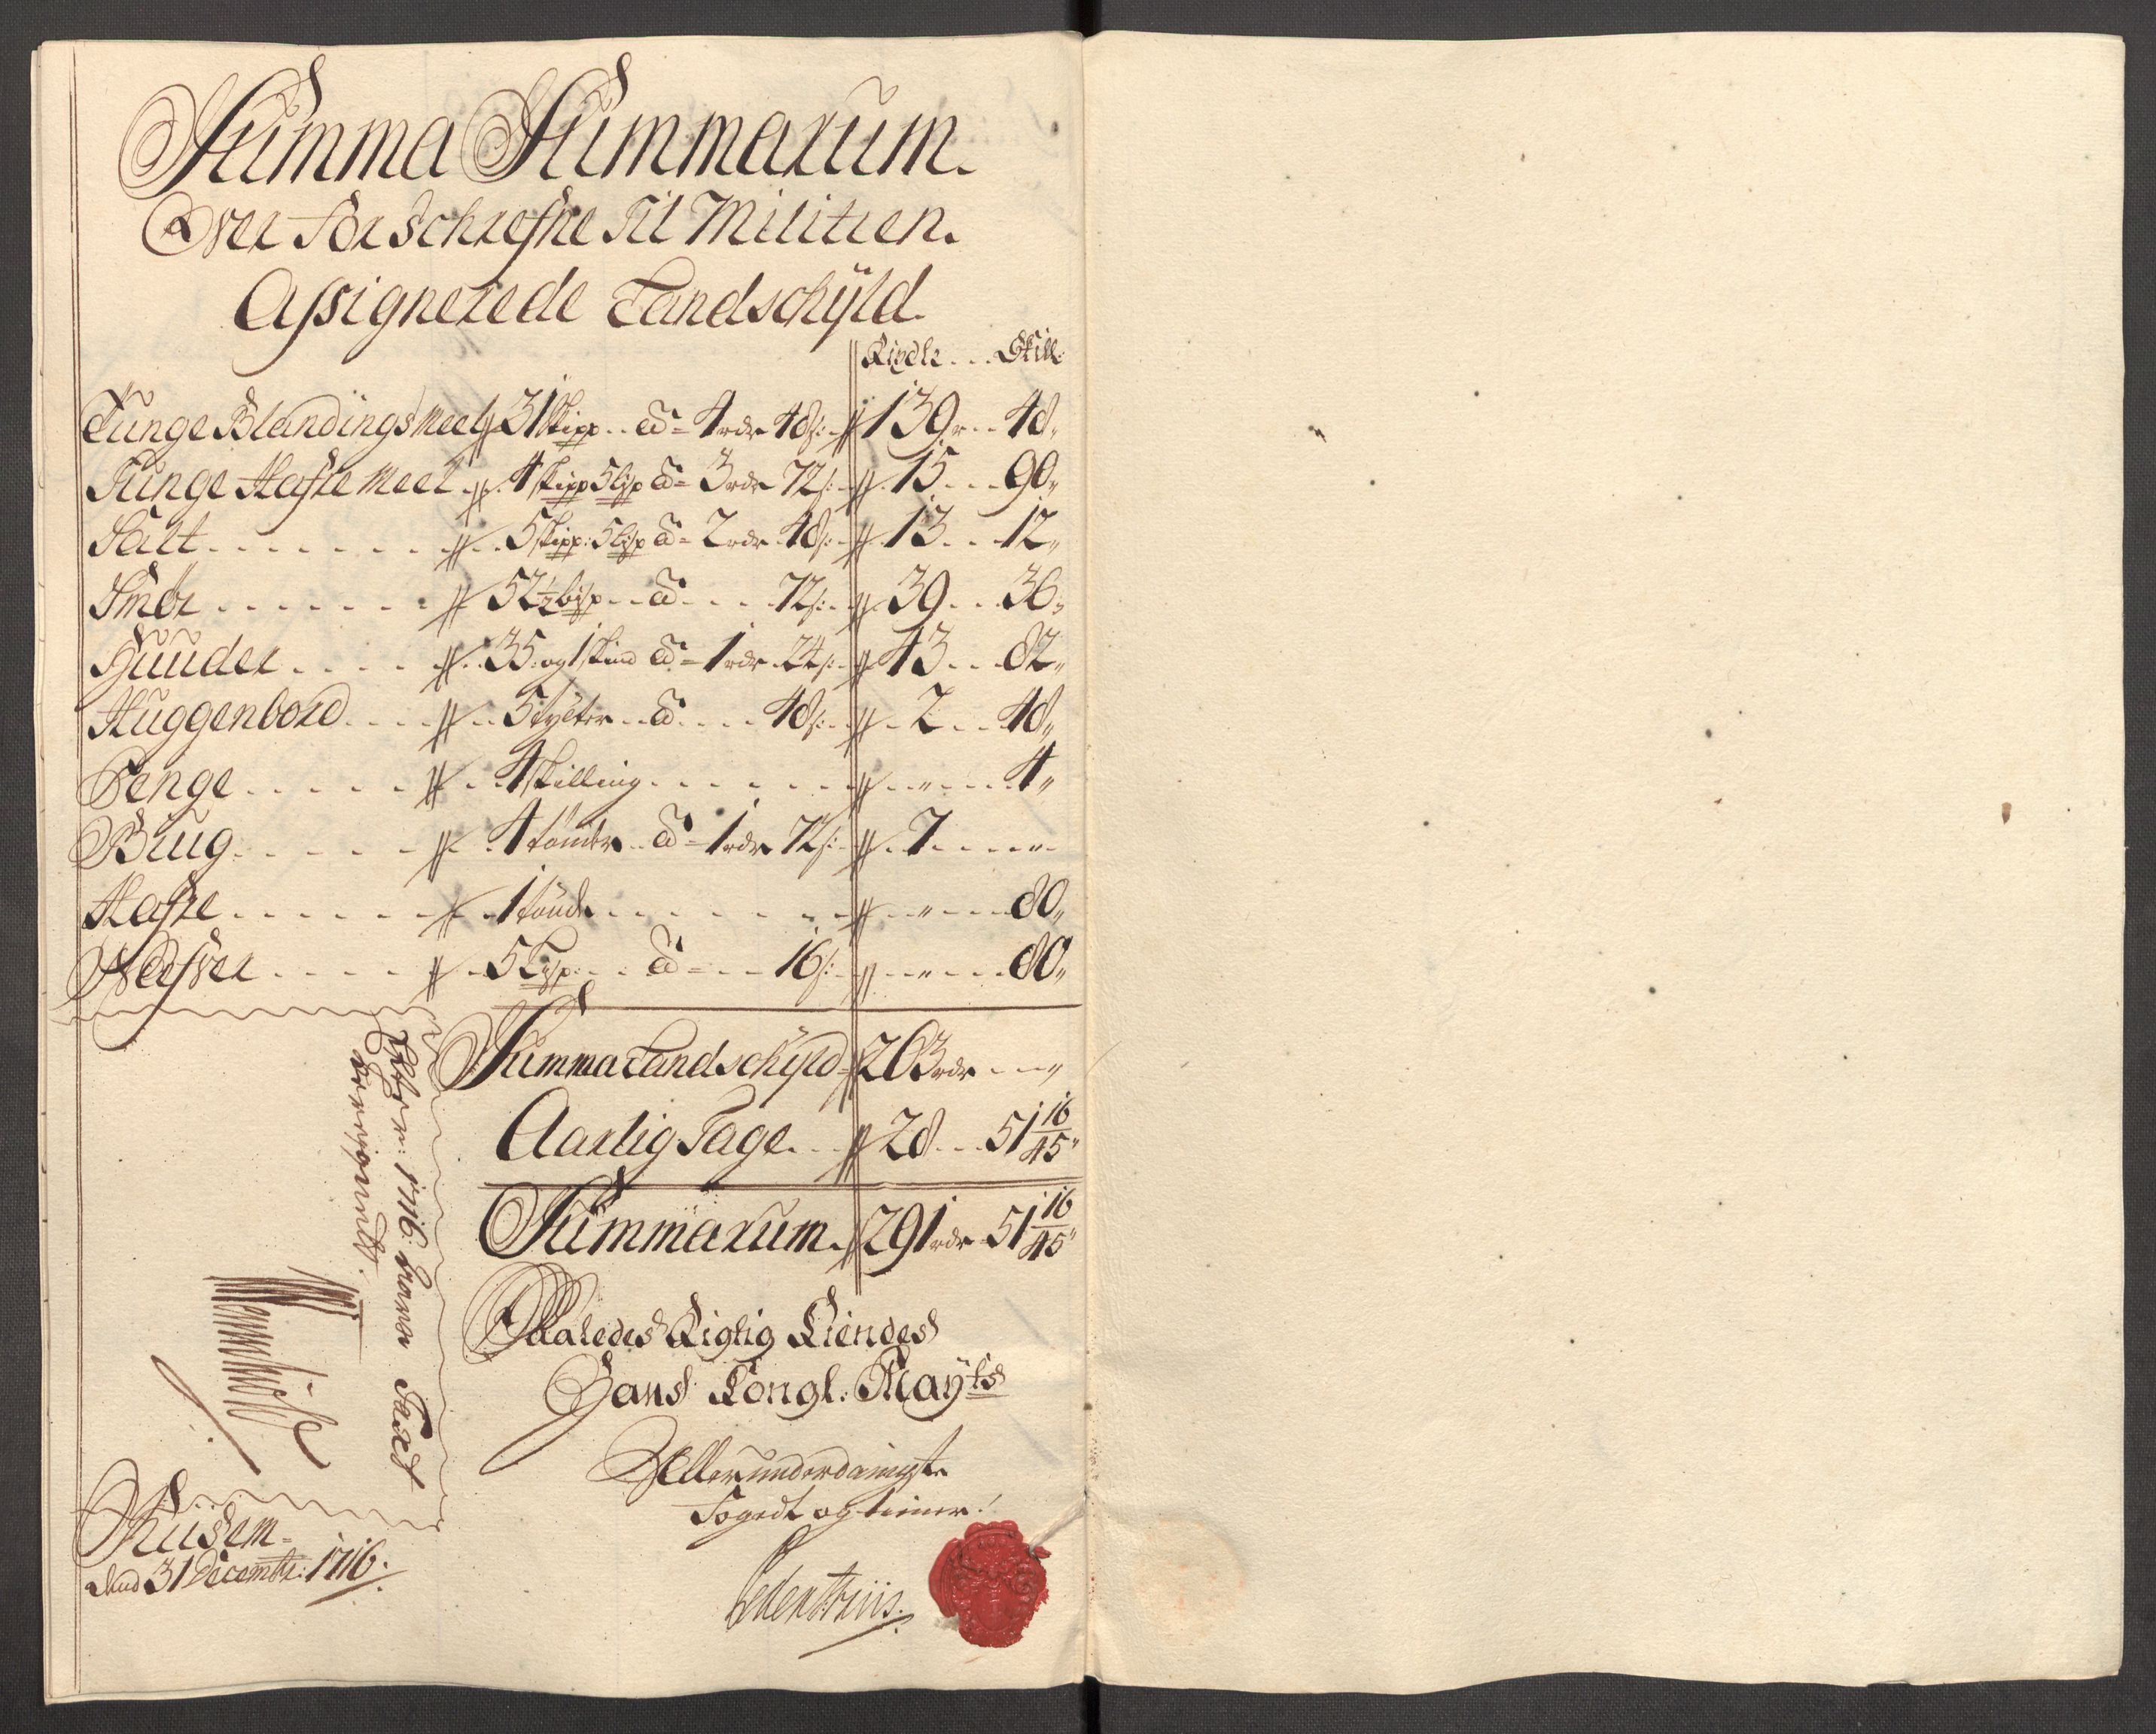 Summa Summarum.
Over Forschrefne Til Militien.
Assignerede Landschÿld.
Rixdlr . . . Skill:
Tunge Blandings Meel 31 skipp . . ad 4 rdr 48 s: 139 . . 48
Tunge Hafre Meel . 4 skipp 5 lisp ad 3 rdr 72 s: 15 . . . 90
Salt . . . . . . . 5 skipp: 5 lisp ad 2 rdr 48 s: 13 . . 12
Smör . . . . . . 52½ bisp . . ad . . . 72 s: 39 . . . 36
Huuder . . . . 35. og 1 skind ad 1 rdr 24 s: 43 . . 82
Huggenbord . . . . 5 tylter . . ad . . . . 48 s: 2 . . 48
Penge . . . . . 4 skilling . . . . . . . " . . . 4
Biug . . . . . 4 tønder . . ad 1 rdr 72 s: 7 . . . . "
Hafre . . . . . . 1 tønde . . . . . . . " . . . 80
Næfver . . . . 5 Lisp . . . ad . . . 16 s: " . . . 80
Summa Landschÿld 263 rdr . . "
Aarlig Tage . . . 28 . . . 51 16/45
Summarum. 291 rdr 51 16/45
1716
Saaledes Rigtig Kiendes
Hans Kongl: Mayts
Allerunderdanigste
Fogedt og tiener!
Hüsem
dend 31 Decembr: 1716.